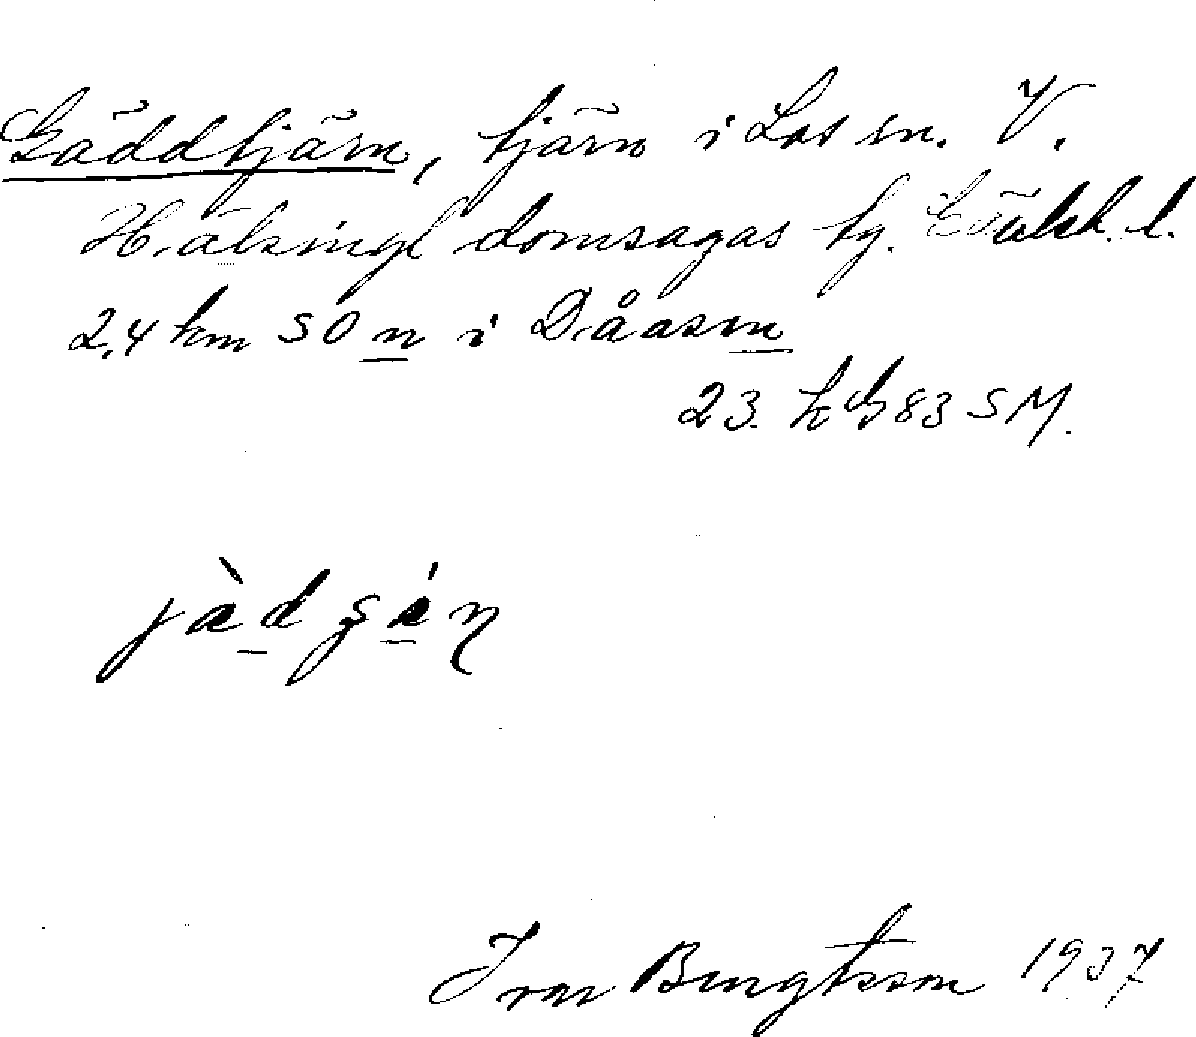 Gäddtjärn, tjärn i Los sn. V.
Hälsingl domsagas tg. Gävleb. l.
2,4 km SO n i Dåasen
23. k G 83 SM.
jàdsén
Ivar Bengtsson 1937